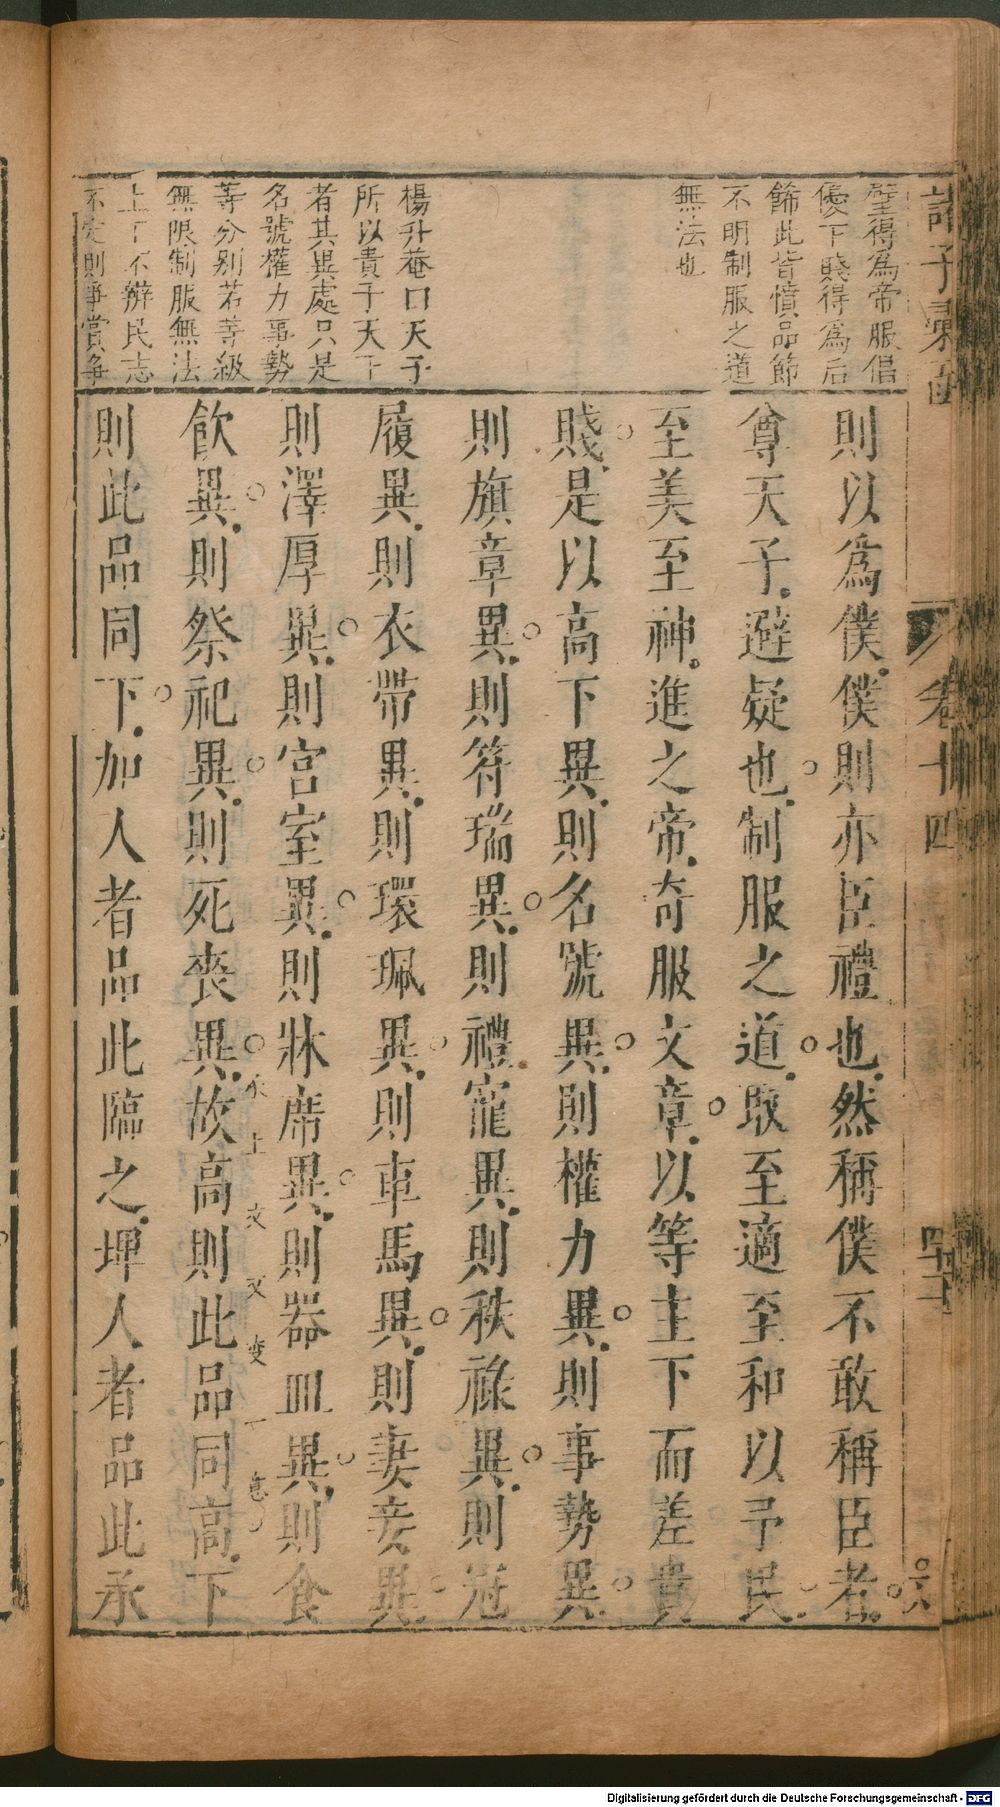 諸子彙函
卷十四
墍得為帝服倡
優下賤得為后
餙此皆憤品節
不明制服之道
無法也
楊升菴曰天子
所以貴于天下
者其異處只是
名號權力事勢
等分别若等級
無限制服無法
上下不辦民志
不定則爭賞爭
則以為僕僕則亦臣禮也然稱僕不敢稱臣者
尊天子避疑也制服之道取至適至和以予民
至美至神進之帝奇服文章以等主下而差貴
賤是以高下異則名號異則權力異則事勢異
則旗章異則符瑞異則禮寵異則秩祿異則冠
履異則衣帶異則環珮異則車馬異則妻妾異
則澤厚異則宮室異則牀席異則器皿異則食
飲異則祭祀異則死喪異故高則此品同高下
則此品同下加人者品此臨之埤人者品此承
Digitalisierung gefördert durch die Deutsche Forschungsgemeinschaft - DFG